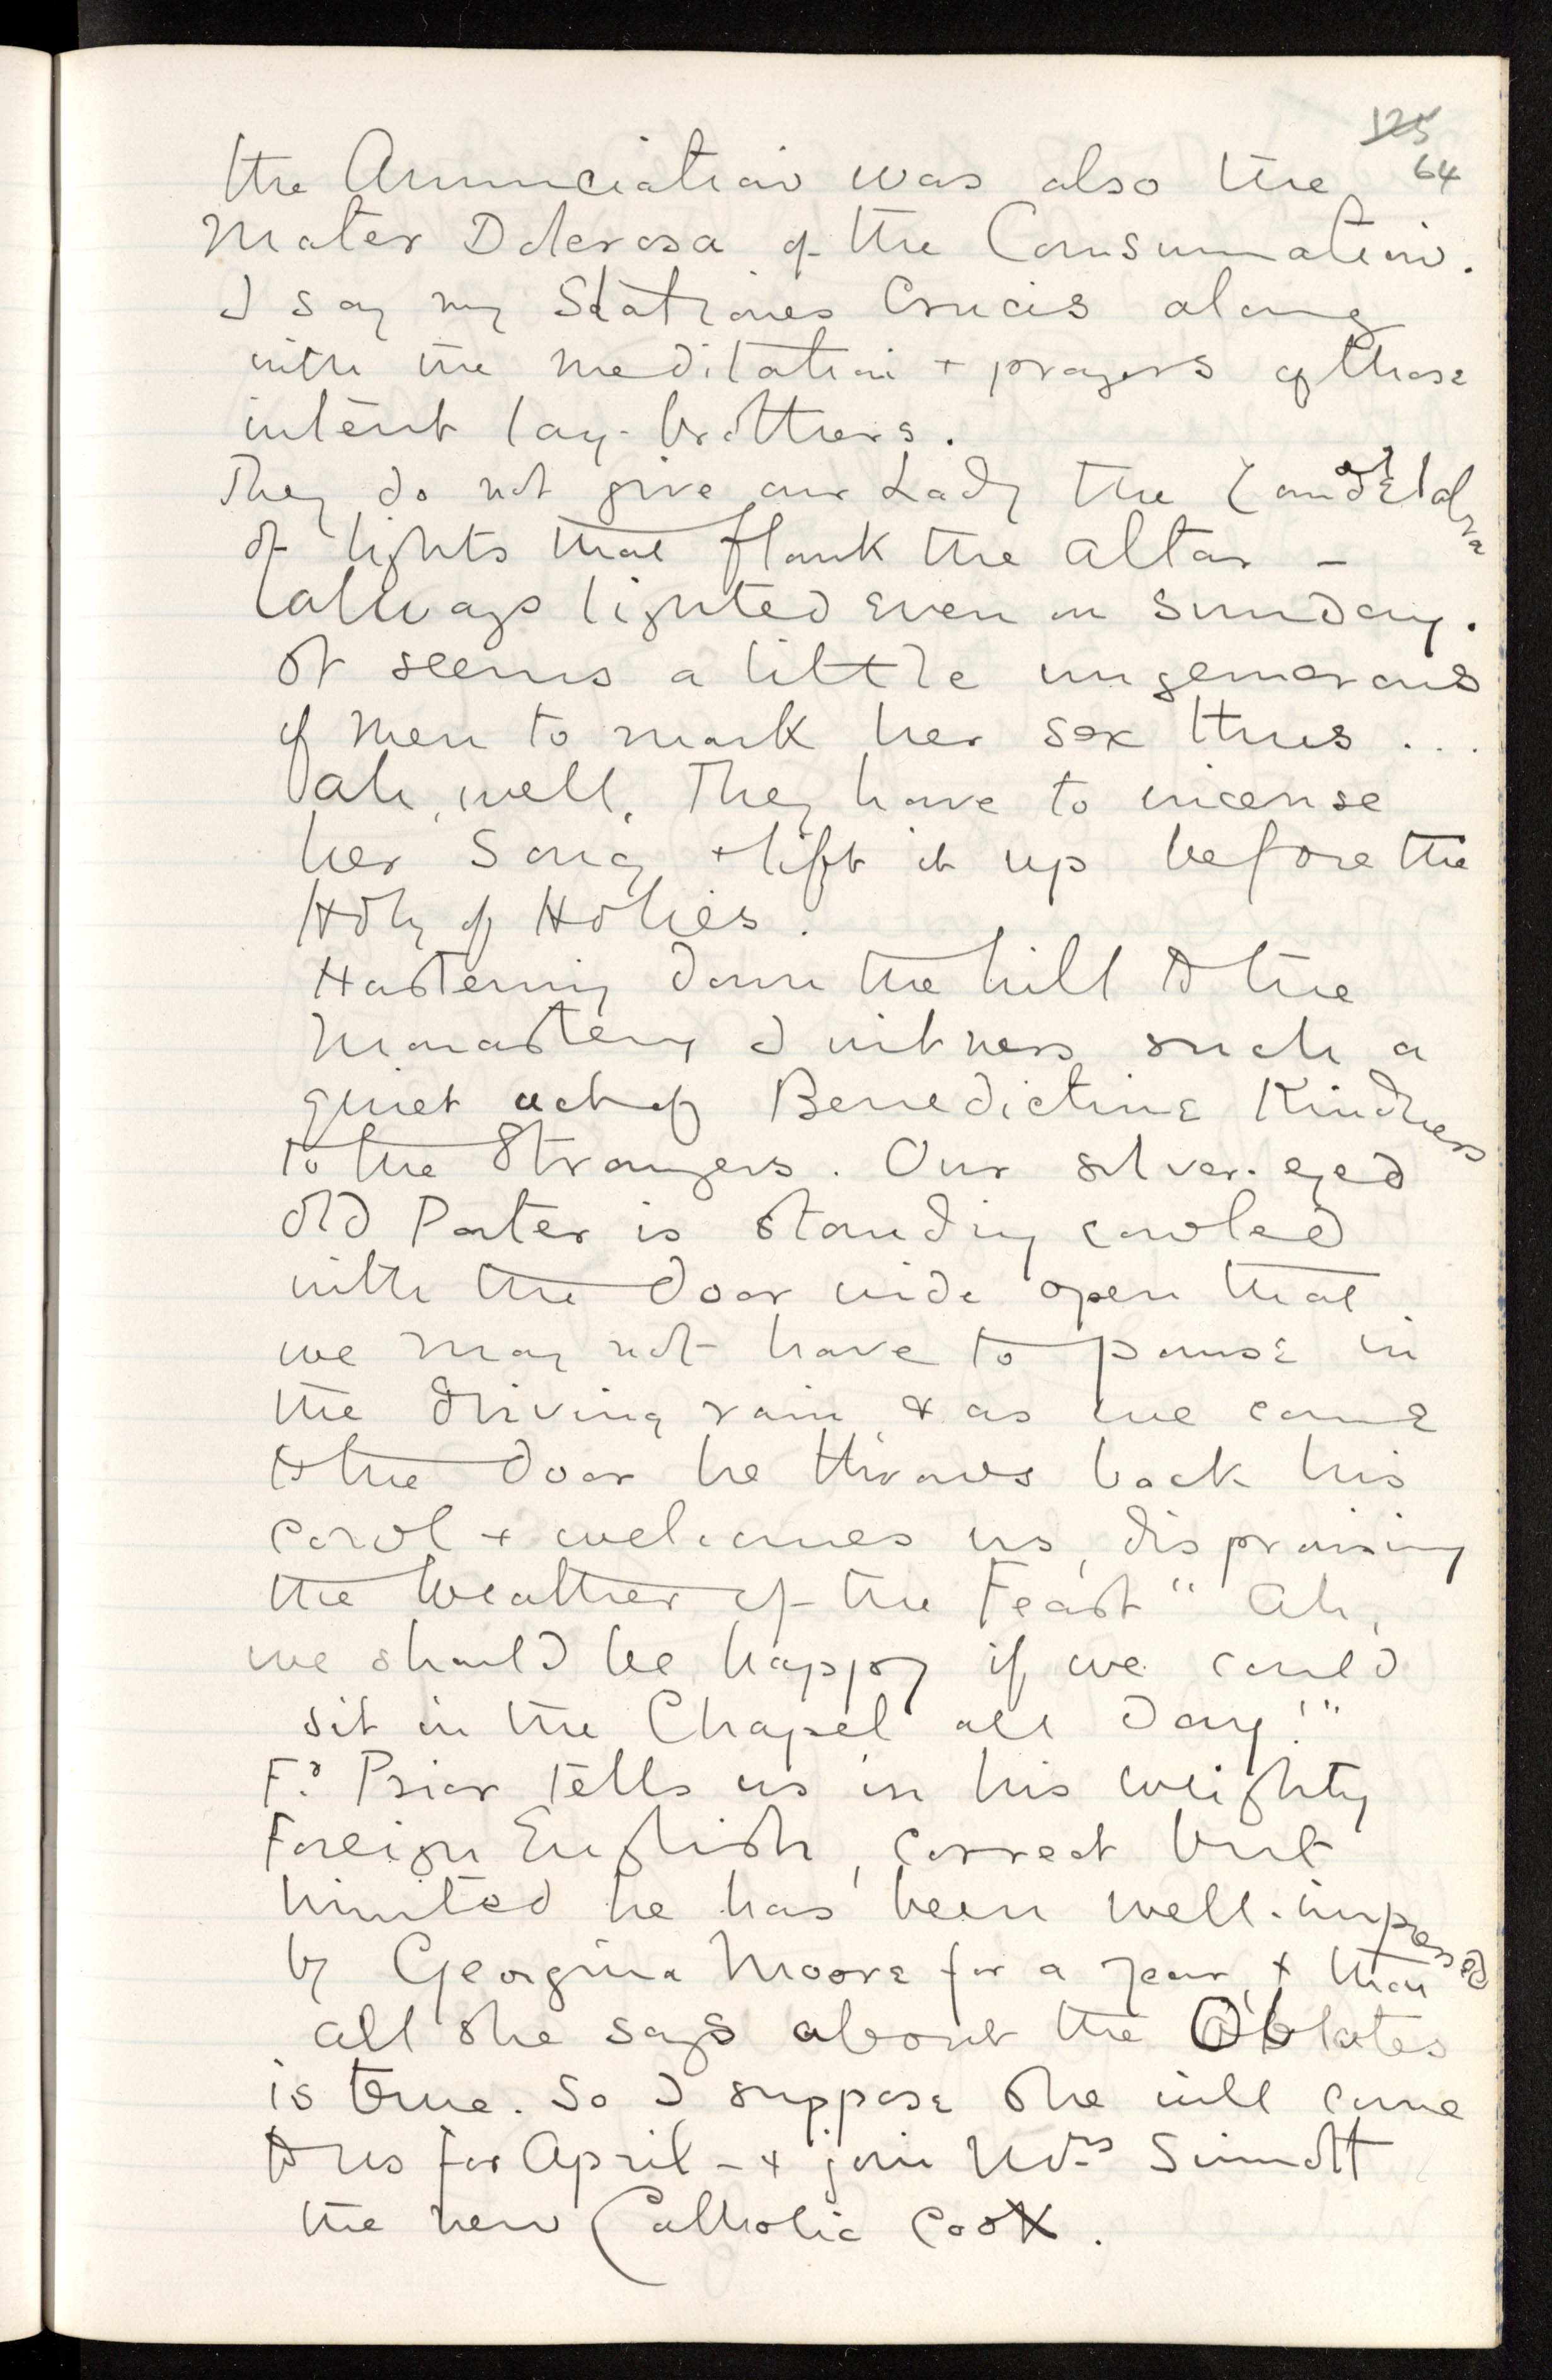 125
64
the Annunciation was also the
Mater Dolorosa of the Consummation.
I say my Stationes Crucis along
with the meditation + prayers of those
intent lay-brothers.
They do not give our Lady the Candelabra
of lights that flank the altar –
always lighted even on Sunday.
It seems a little ungenerous
of men to mark her sex thus ...
Ah, well, They have to incense
her Song + lift it up before the
Holy of Holies.
Hastening down the hill to the
Monastery I witness such a
quiet act of Benedictine Kindness
to the Strangers. Our silver-eyed
old Porter is standing cowled
with the door wide open that
we may not have to pause in
the driving rain, & as we come
to the door he throws back his
cowl + welcomes us, dispraising
the Weather of the Feast "Ah,
we should be happy if we could
sit in the Chapel all day!"
Fr Prior tells us in his weighty
Foreign English, correct but
limited he has been well-impressed
by Georgina Moore for a year, + that
all she says about the Oblates
is true. So I suppose she will come
to us for April – + join Mrs
the new Catholic cook.